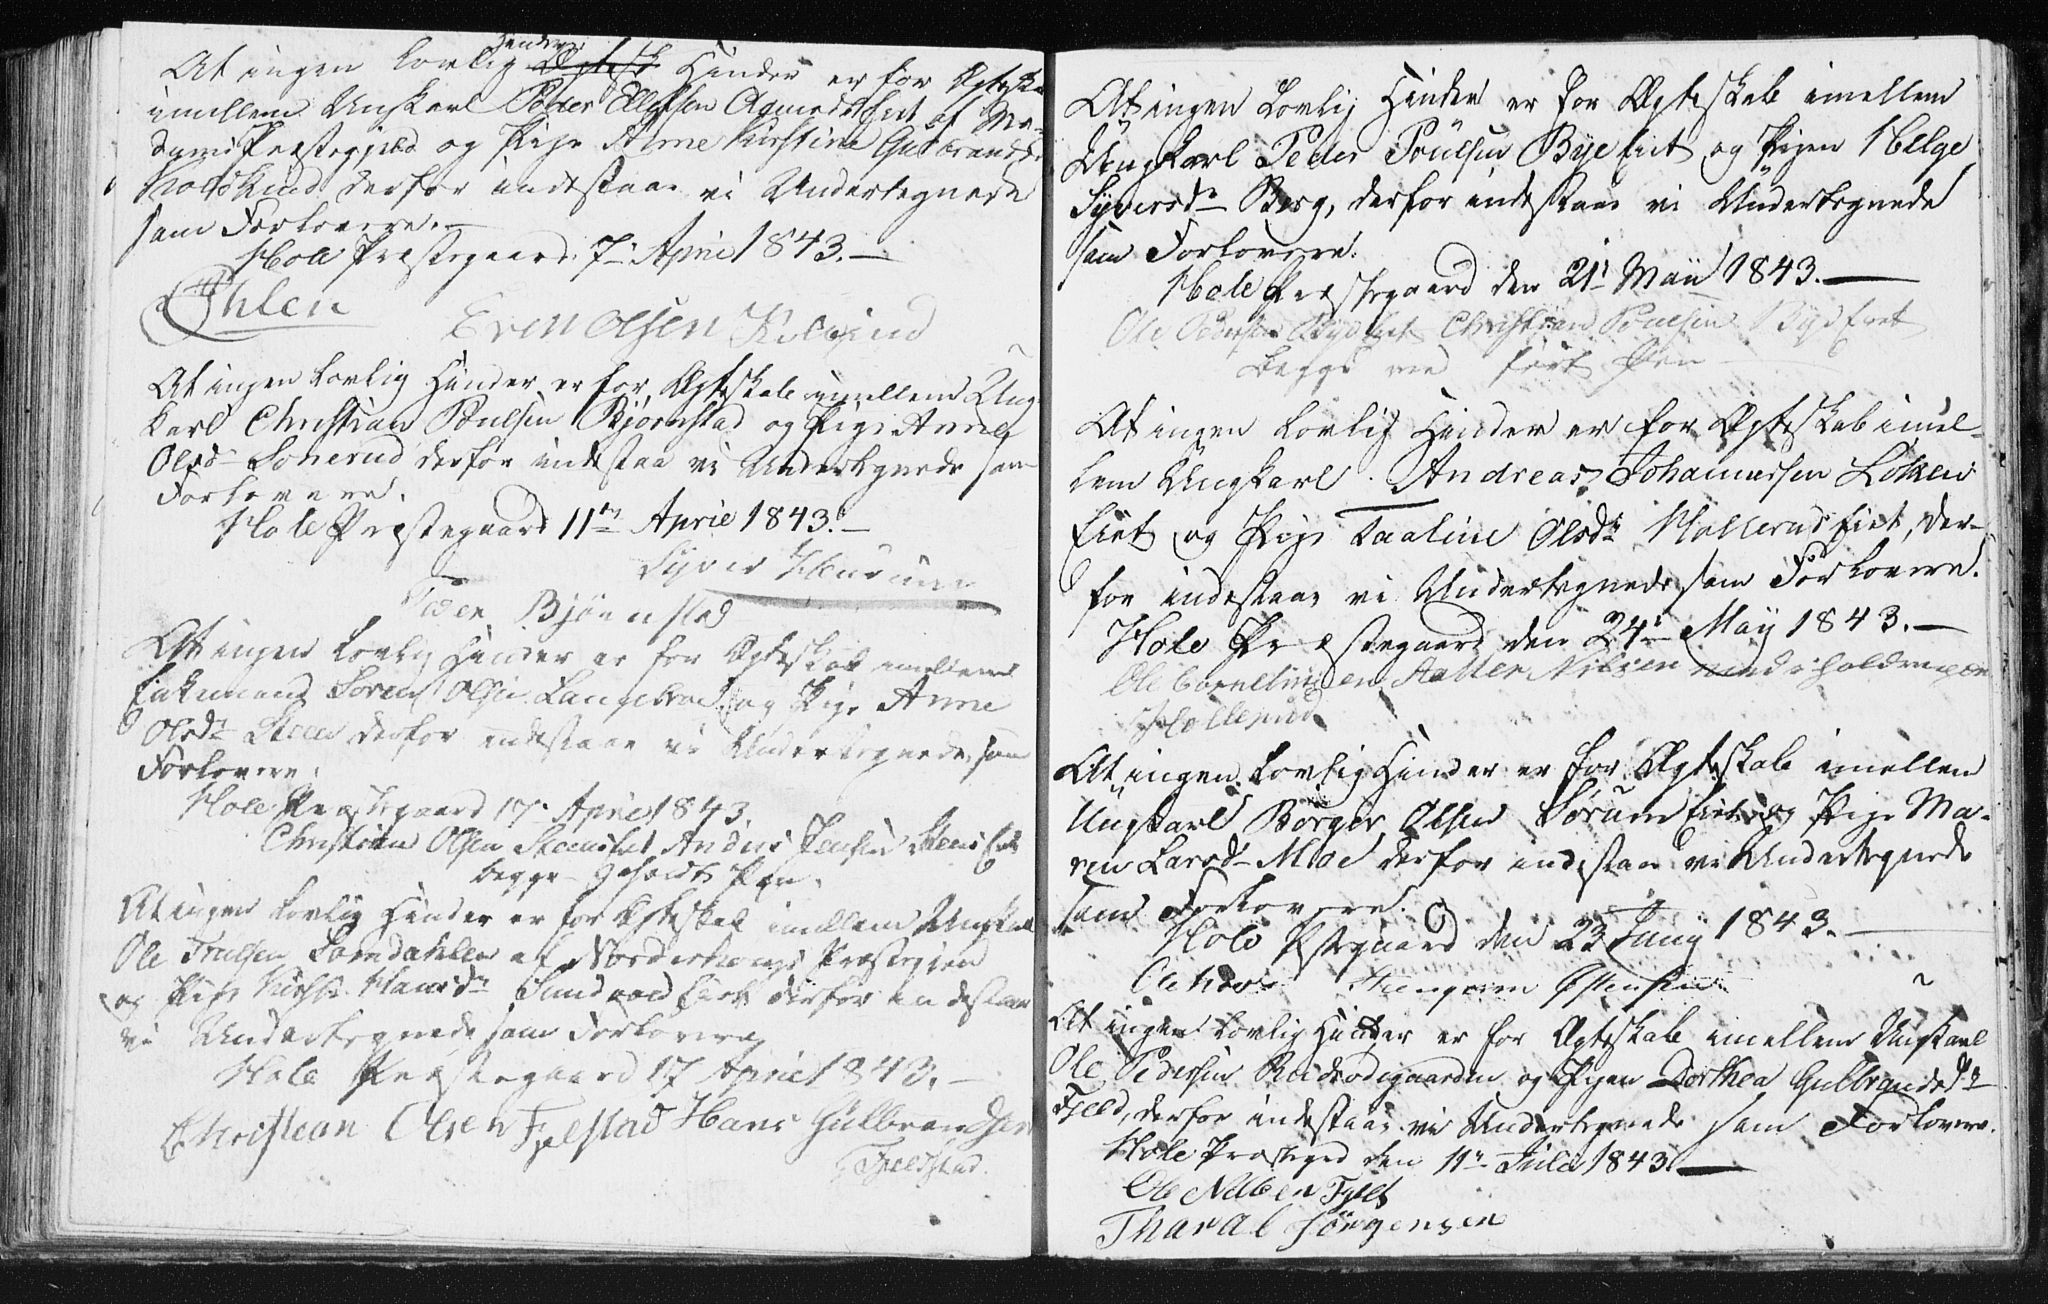 At ingen Lovlig Hinder er for Ægteska
imellem Ungkarl Peder Ellefsen af Mo-
dums Præstegjeld og Pige Anne Kirstine Gulbrandsd:
derfor indestaae vi Undertegnede
som Forlovere.
Hole Præstegaard 7de April 1843.
Ihlen
Even Olsen
At ingen Lovlig Hinder er for Ægteskab imellem Ung-
karl Christian Poulsen Bjørnstad og Pige Anne
Olsd: Lonerud derfor indestaa vi Undertegnede som
Forlovere.
Hole Præstegaard 11te April 1843.
Syver
Peder Bjørnstad
At ingen Lovlig Hinder er for Ægteskab imellem
Enkemand Søren Olsen og Pige Anne
Olsdr Steen derfor indestaae vi Undertegnede som
Forlovere.
Hole Præstegaard 17. April 1843.
Christian Olsen Anders Jensen
begge holdt Pen.
At ingen Lovlig Hinder er for Ægteskab imellem Ungkarl
Ole Trulsen af Norderhougs Præstegjeld
og Pige Kirsti Hansdr derfor indestaae
vi Undertegnede som Forlovere
Hole Præstegaard 17 April 1843.
Christean Olsen Fjelstad Hans Gulbrandsen
Fjeldstad.
At ingen Lovlig Hinder er for Ægteskab imellem
Ungkarl Peder Poulsen Bye Eiet og Pigen Helge
Syversdr Berg, derfor indestaae vi Undertegnede
som Forlovere.
Hole Præstegaard den 21de Maii 1843.
Ole Pedersen Christian Poulsen
begge med ført Pen
At ingen Lovlig Hinder er for Ægteskab imel-
lem Ungkarl Andreas Johannesen Løken
Eiet og Pige Karline Olsdr Hollerud Eiet, der-
for indestaae vi Undertegnede som Forlovere.
Hole Præstegaard den 24de May 1843.
Ole Corneliusen Halten Nilsen med iholden pen
Hollerud
At ingen Lovlig Hinder er for Ægteskab imellem
Ungkarl Børger Olsen Sørum Eiet og Pige Ma-
ren Larsdr Moe derfor indestaae vi Undertegnede
som Forlovere.
Hole den 23 Juny 1843.
At ingen Lovlig Hinder er for Ægteskab imellem Ungkarl
Ole Pedersen og Pigen Dorthea Gulbrandsdr
Fjeld, derfor indestaae vi Undertegnede som Forlovere.
Hole den 11te Juli 1843
Ole Fjeld
Tharal Jörgensen